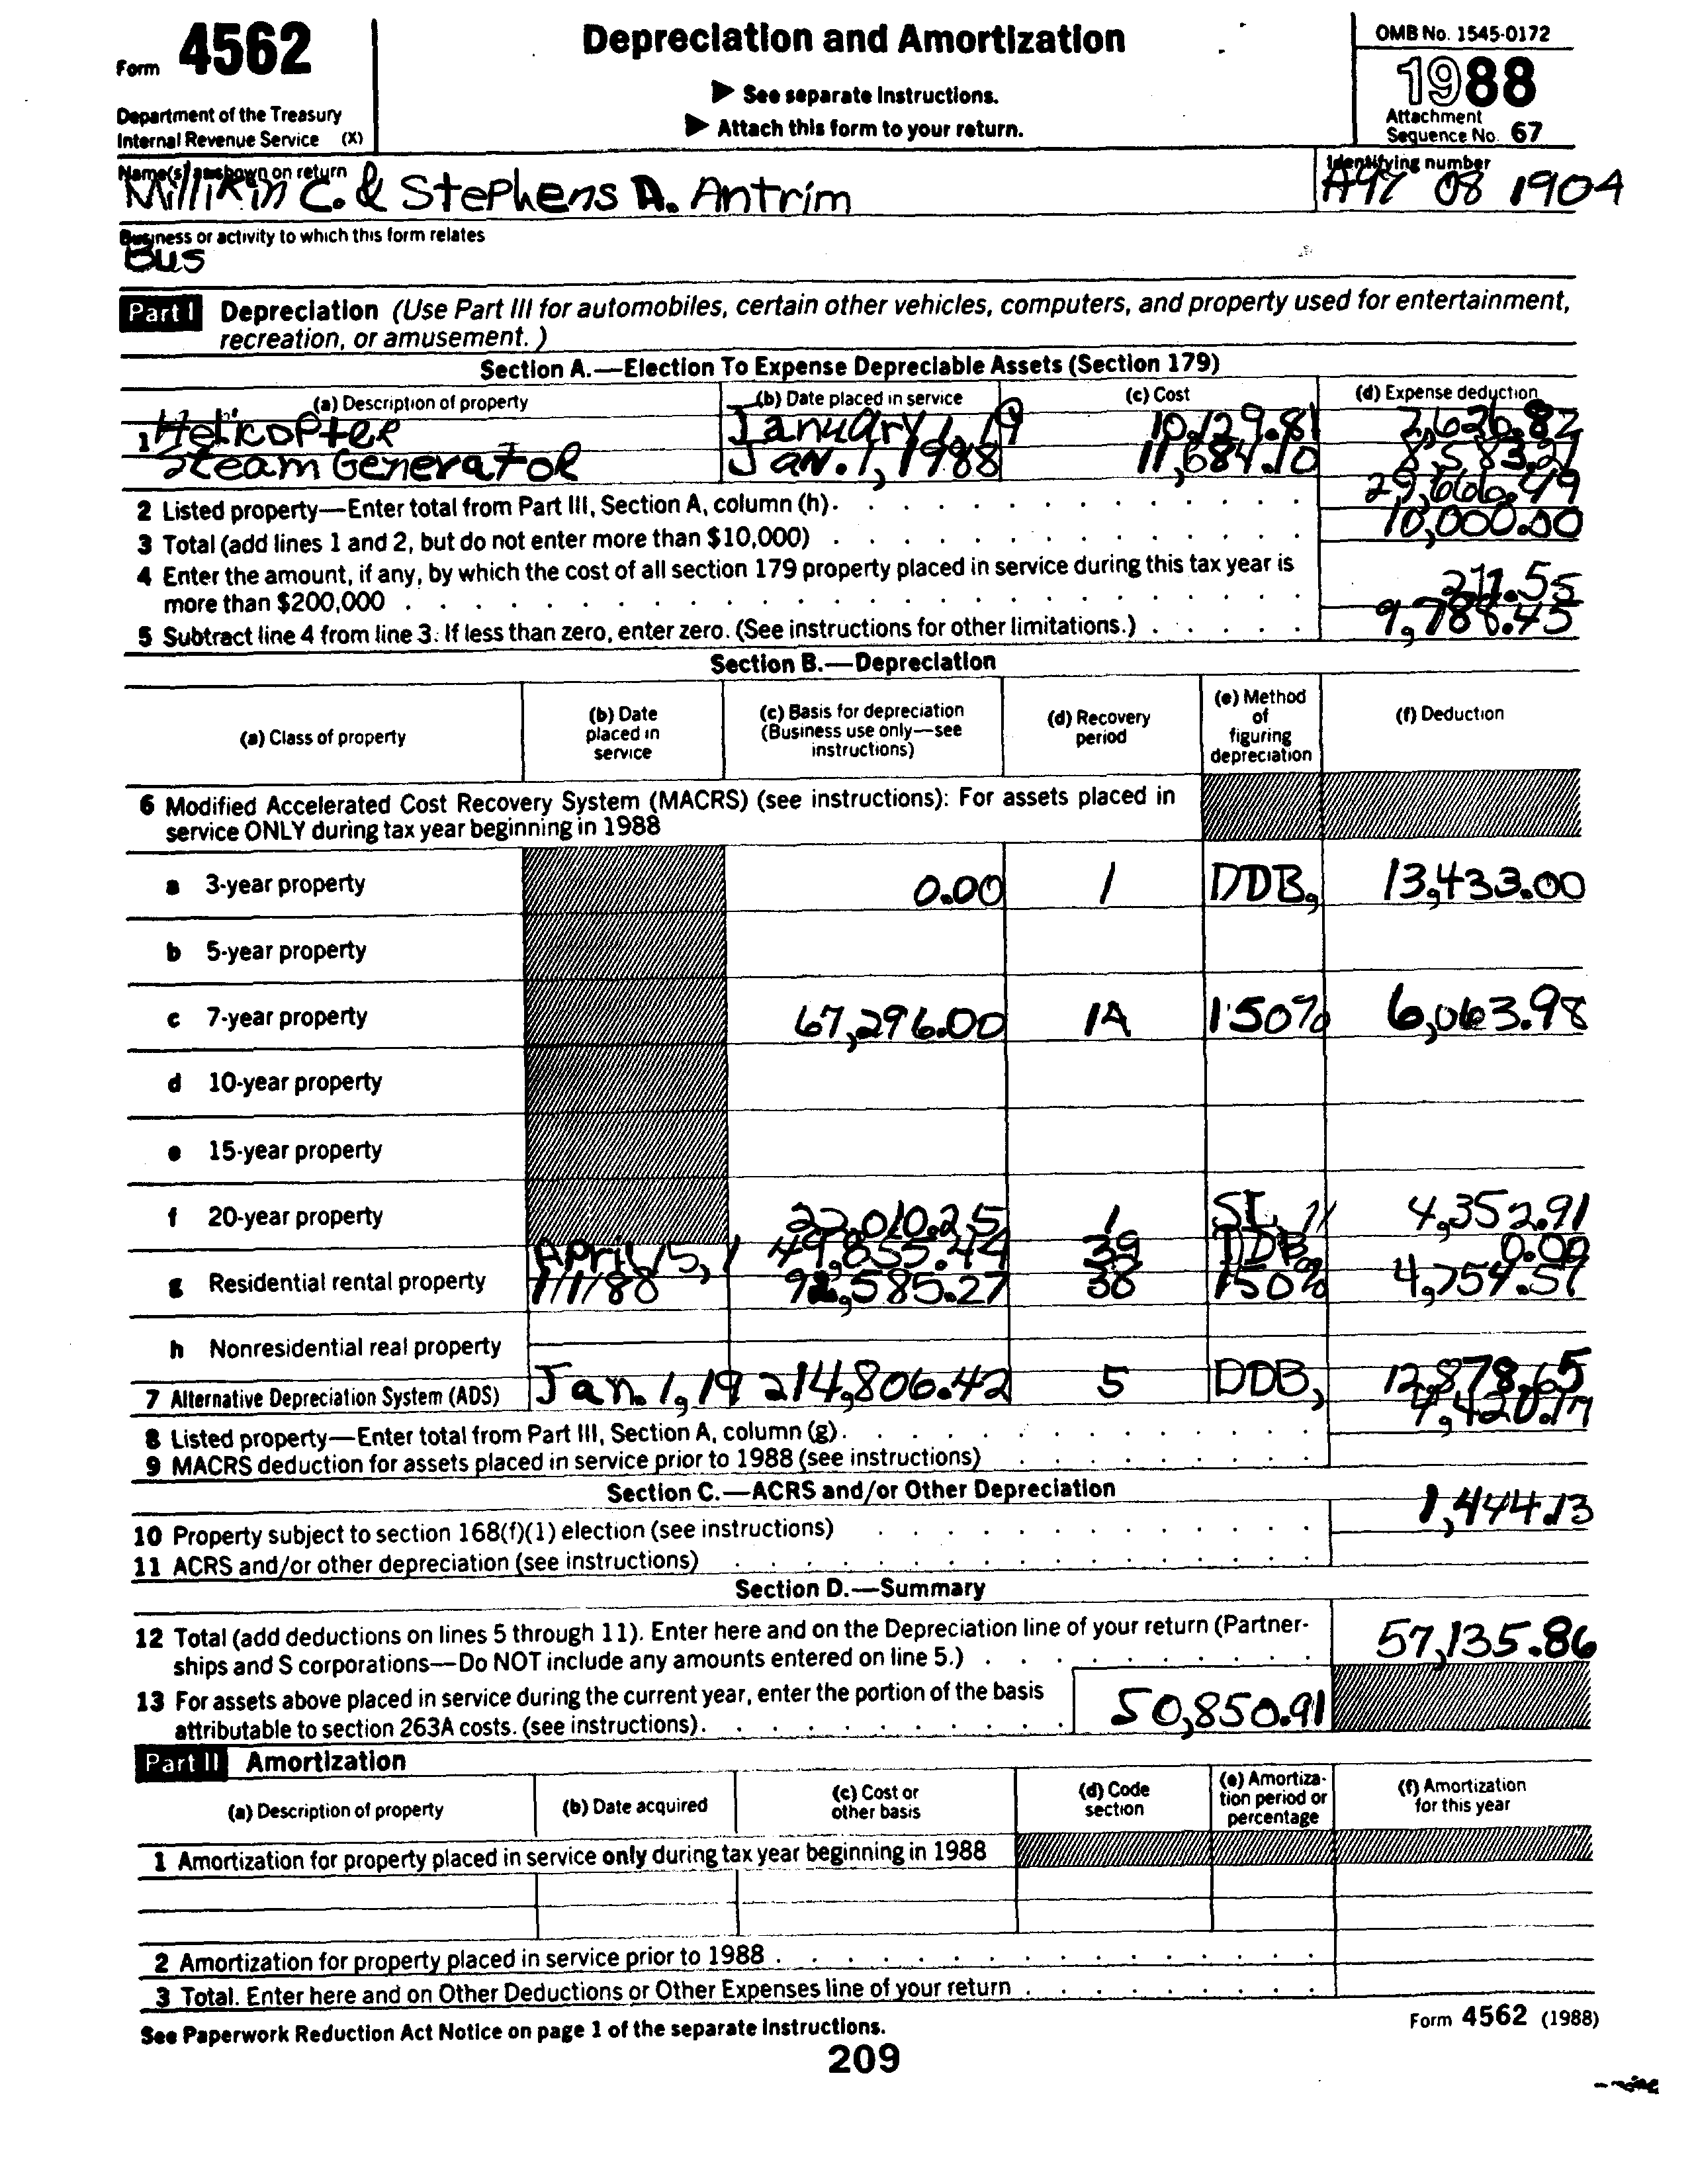 Form 4562
Department of the Treasury
Internal Revenue Service (X)
Depreciation and Amortization
▶ See separate Instructions.
▶ Attach this form to your return.
OMB No. 1545-0172
1988
Attachment
Sequence No. 67
Name(s) as shown on return
Millikin C. & Stephens A. Antrim
Identifying number
08 1904
Business or activity to which this form relates
Bus
Part I Depreciation (Use Part III for automobiles, certain other vehicles, computers, and property used for entertainment,
recreation, or amusement.)
Section A.—Election To Expense Depreciable Assets (Section 179)
(a) Description of property (b) Date placed in service (c) Cost (d) Expense deduction
1 Helicopter January 1, 19 10,129.81 7,626.82
Steam Generator Jan. 1, 1988 11,684.10 8,583.21
2 Listed property—Enter total from Part III, Section A, column (h). 29,666.49
3 Total (add lines 1 and 2, but do not enter more than $10,000) 10,000.00
4 Enter the amount, if any, by which the cost of all section 179 property placed in service during this tax year is
more than $200,000 211.55
5 Subtract line 4 from line 3. If less than zero, enter zero. (See instructions for other limitations.) 9,788.45
Section B.—Depreciation
(a) Class of property (b) Date placed in service (c) Basis for depreciation (Business use only—see instructions) (d) Recovery period (e) Method of figuring depreciation (f) Deduction
6 Modified Accelerated Cost Recovery System (MACRS) (see instructions): For assets placed in
service ONLY during tax year beginning in 1988
a 3-year property 0.00 1 DDB, 13,433.00
b 5-year property
c 7-year property 67,296.00 1A 150% 6,063.98
d 10-year property
e 15-year property
f 20-year property 22,010.25 1 SL, 11 4,352.91
April 15, 1 49,855.44 39 DDB, 0.00
g Residential rental property 1/1/88 92,585.27 38 150% 4,754.57
h Nonresidential real property
7 Alternative Depreciation System (ADS) Jan. 1, 19 214,806.42 5 DDB, 12,878.65
8 Listed property—Enter total from Part III, Section A, column (g). 4,420.17
9 MACRS deduction for assets placed in service prior to 1988 (see instructions)
Section C.—ACRS and/or Other Depreciation
10 Property subject to section 168(f)(1) election (see instructions) 1,444.13
11 ACRS and/or other depreciation (see instructions)
Section D.—Summary
12 Total (add deductions on lines 5 through 11). Enter here and on the Depreciation line of your return (Partner-
ships and S corporations—Do NOT include any amounts entered on line 5.) 57,135.86
13 For assets above placed in service during the current year, enter the portion of the basis
attributable to section 263A costs. (see instructions). 50,850.91
Part II Amortization
(a) Description of property (b) Date acquired (c) Cost or other basis (d) Code section (e) Amortiza-tion period or percentage (f) Amortization for this year
1 Amortization for property placed in service only during tax year beginning in 1988
2 Amortization for property placed in service prior to 1988
3 Total. Enter here and on Other Deductions or Other Expenses line of your return
See Paperwork Reduction Act Notice on page 1 of the separate Instructions.
Form 4562 (1988)
209